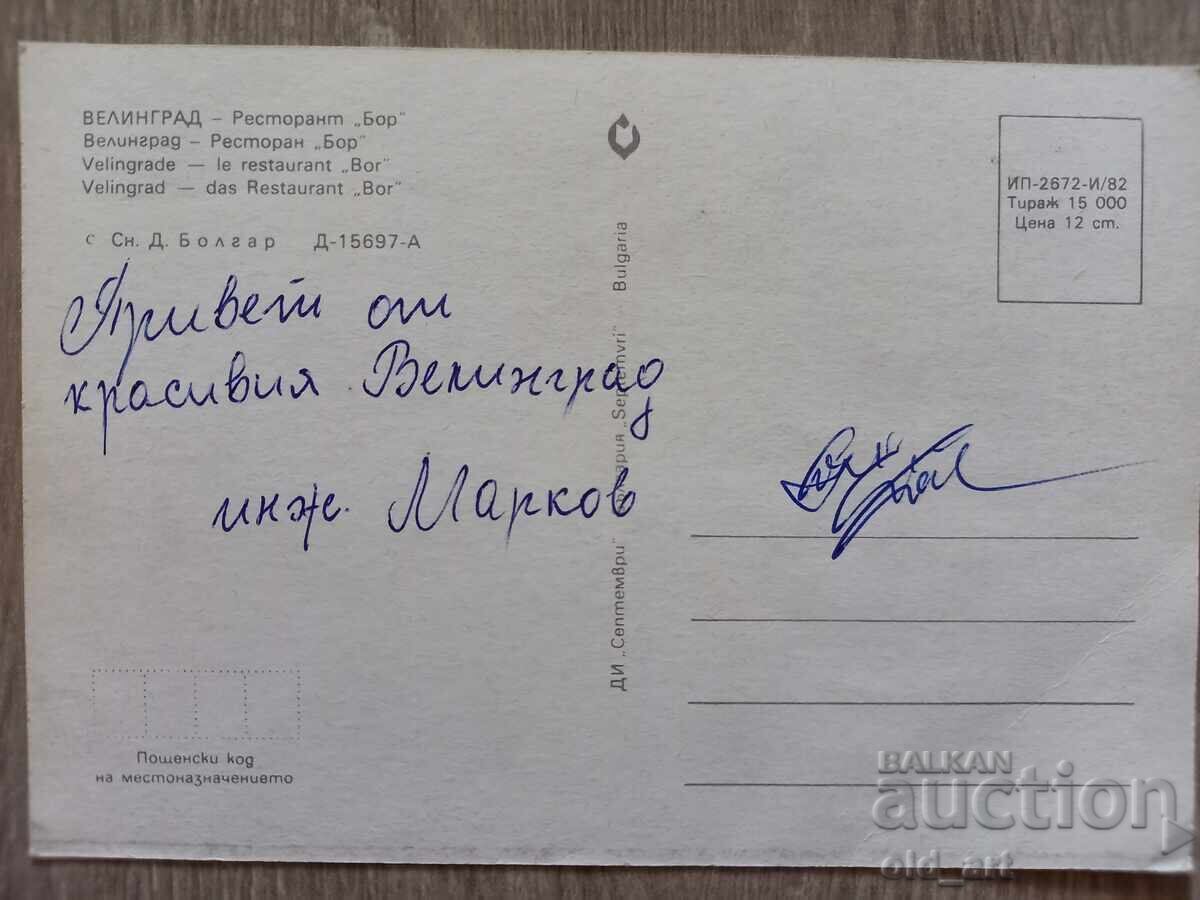 ВЕЛИНГРАД – Ресторант „Бор"
Велинград – Ресторан „Бор"
Velingrade — le restaurant „Bor"
Velingrad — das Restaurant „Bor"
с Сн. Д. Болгар Д-15697-А
Привет от
красивия Велинград
инж. Марков
Пощенски код
на местоназначението
ДИ „Септември" „Septemvri" Bulgaria
ИП-2672-И/82
Тираж 15 000
Цена 12 ст.
BALKAN
auction
old_art